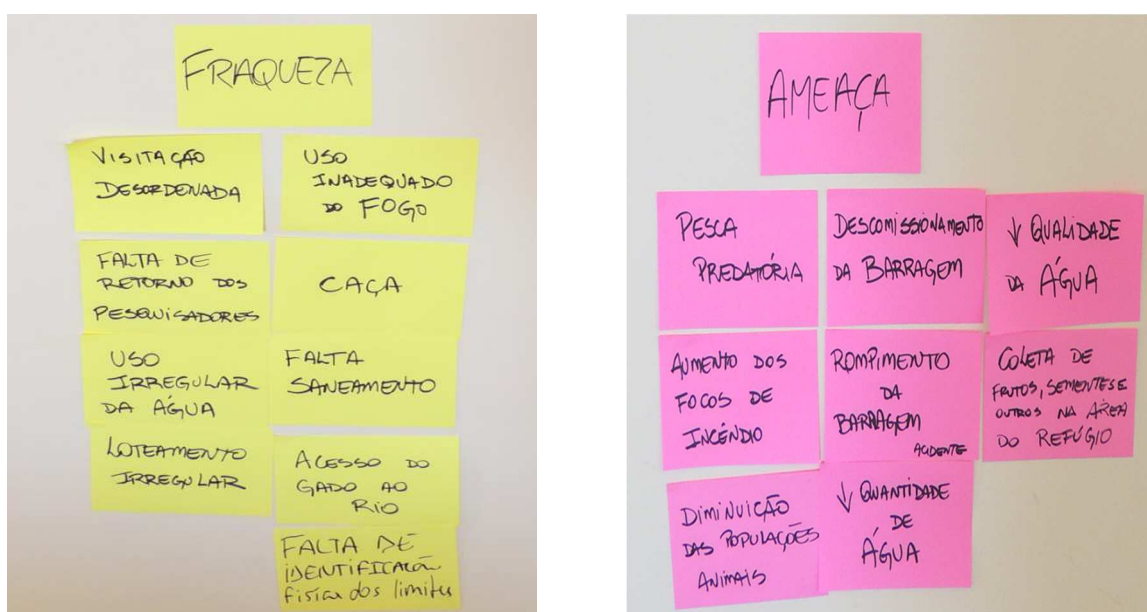 FRAQUEZA
VISITAÇÃO
DESORDENADA
USO
INADEQUADO
DO FOGO
FALTA DE
RETORNO DOS
PESQUISADORES
CAÇA
USO
IRREGULAR
DA ÁGUA
FALTA
SANEAMENTO
LOTEAMENTO
IRREGULAR
ACESSO DO
GADO AO
RIO
FALTA DE
IDENTIFICAÇÃO
física dos limites
AMEAÇA
PESCA
PREDATÓRIA
DESCOMISSIONAMENTO
DA BARRAGEM
↓ QUALIDADE
DA ÁGUA
AUMENTO DOS
FOCOS DE
INCÊNDIO
ROMPIMENTO
DA
BARRAGEM
ACIDENTE
COLETA DE
FRUTOS, SEMENTES E
OUTROS NA ÁREA
DO REFÚGIO
DIMINUIÇÃO
DAS POPULAÇÕES
ANIMAIS
↓ QUANTIDADE
DE
ÁGUA